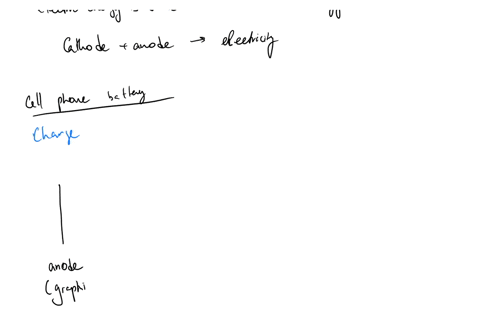 Cathode + anode → electricity
Cell phone battery
Charge
anode
(graphi